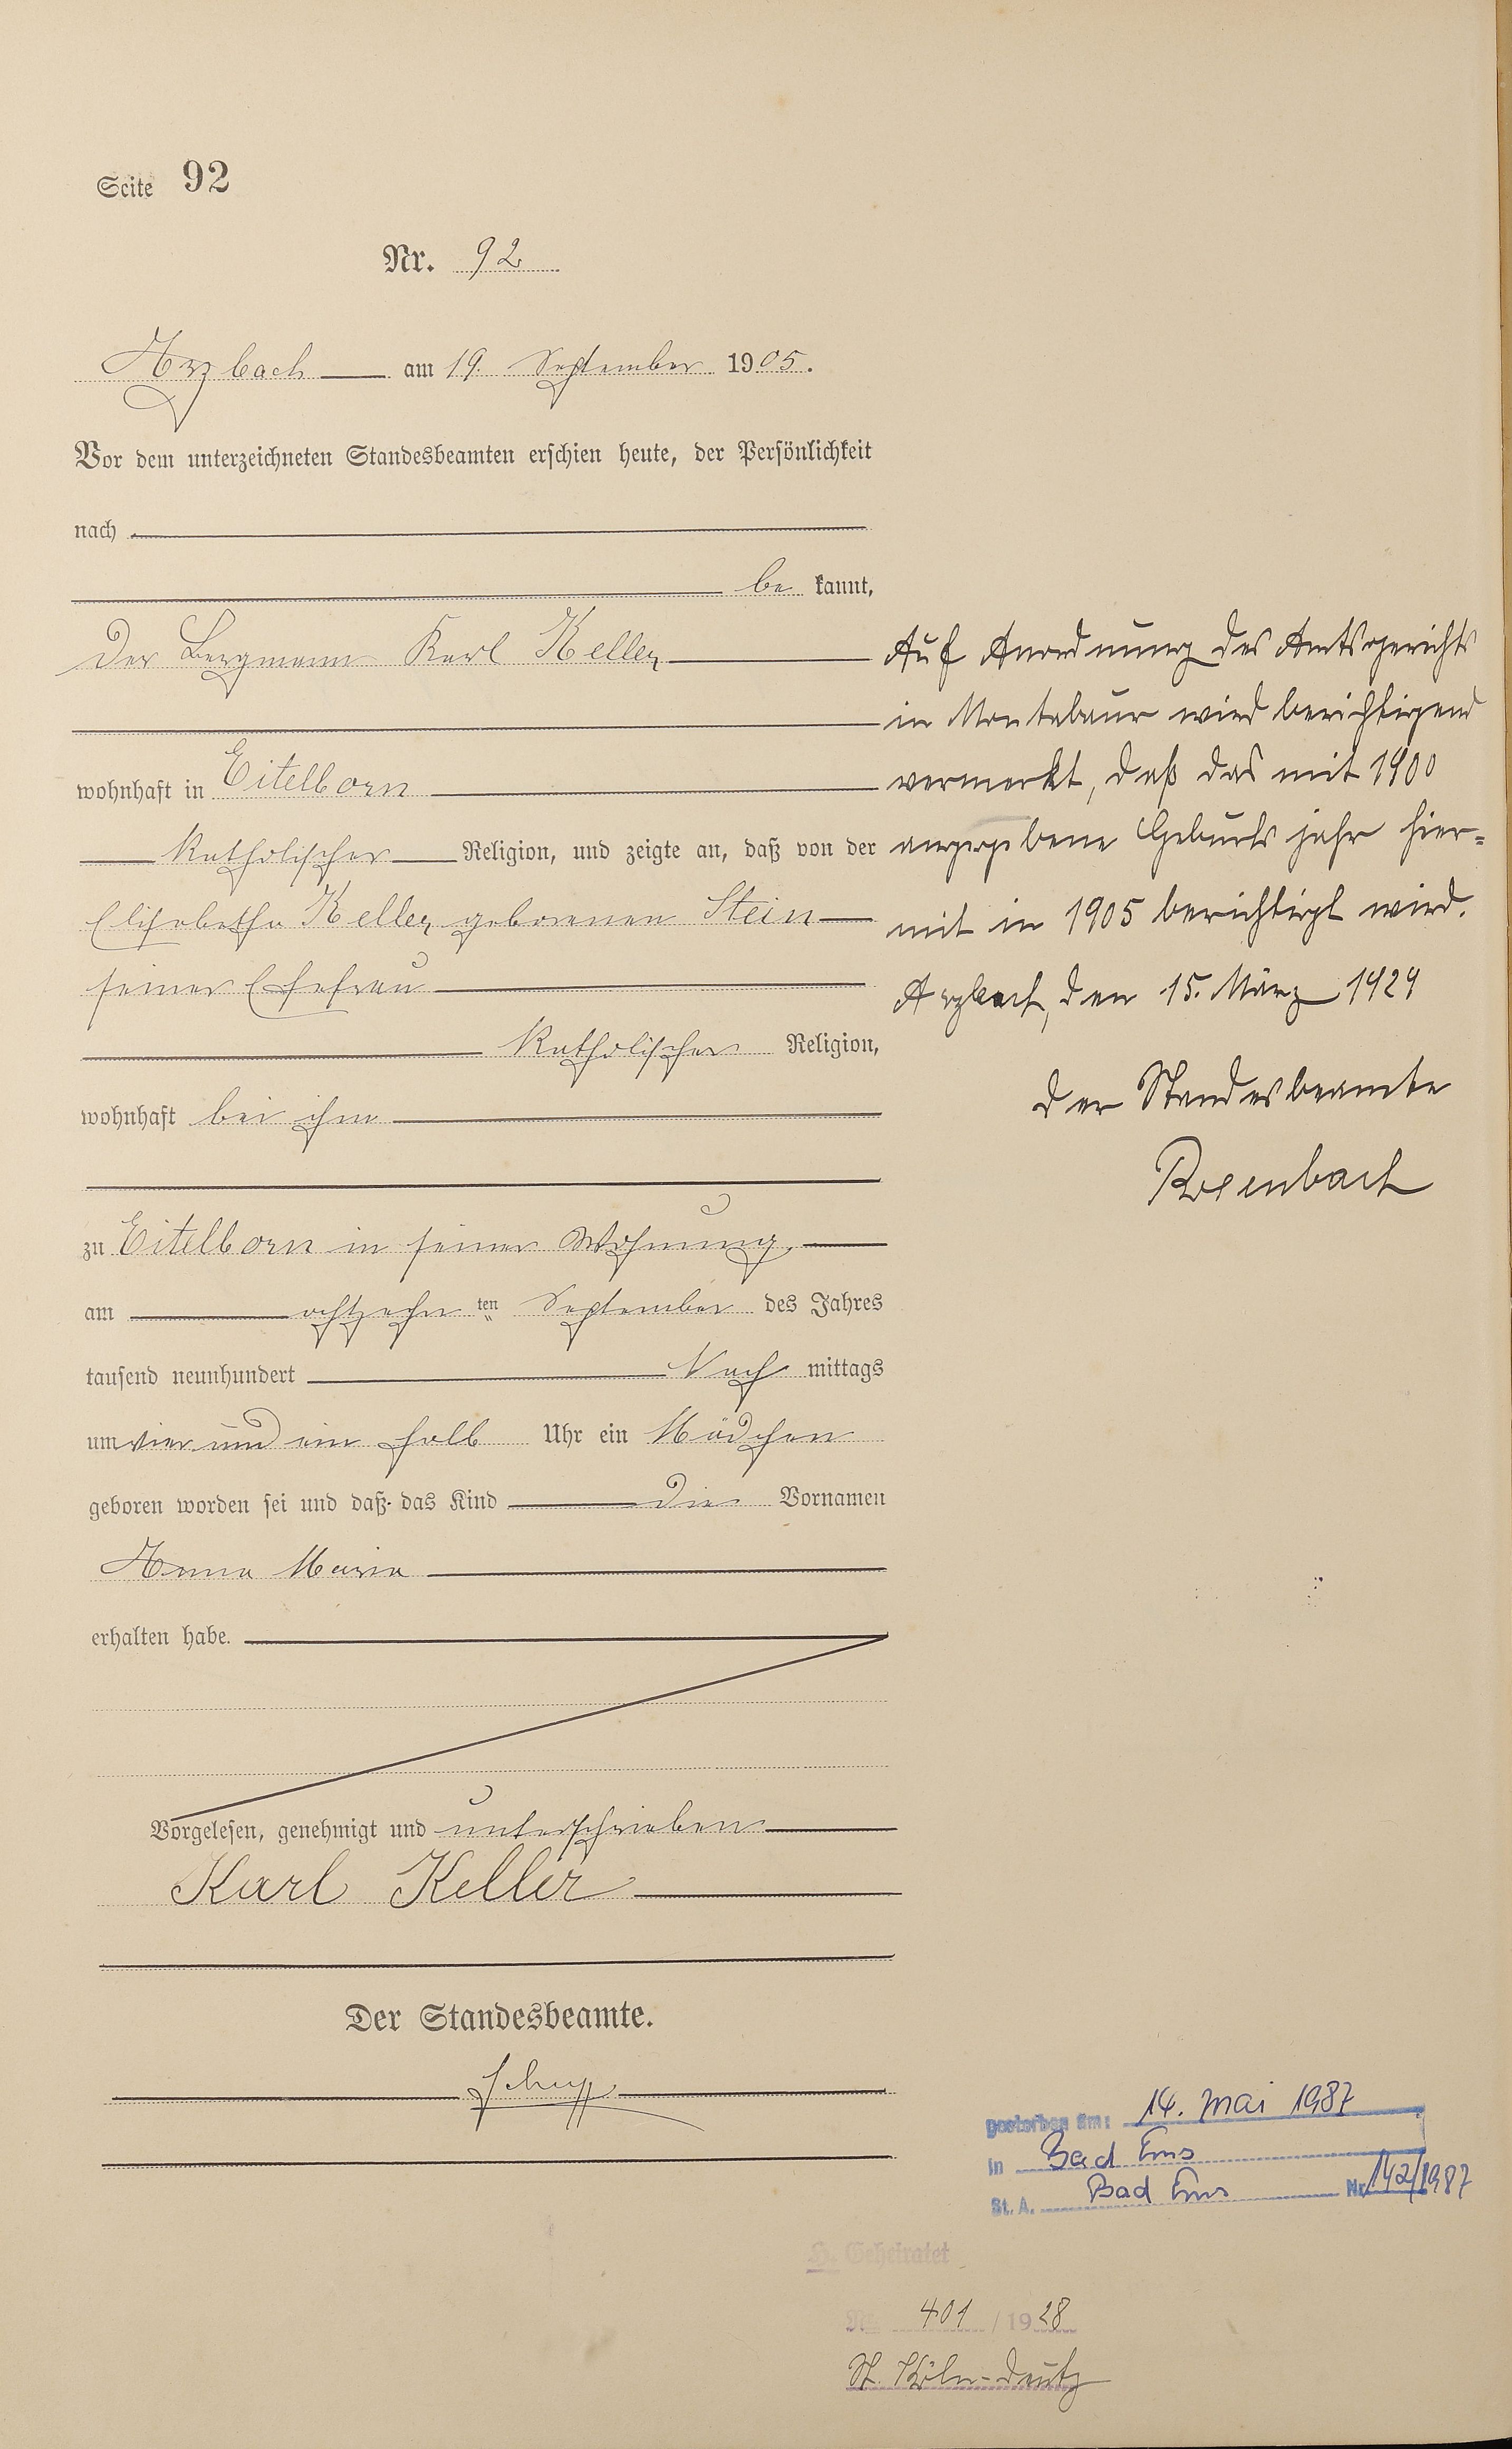 Seite 92
Nr. 92
Arzbach am 19. September 1905.
Vor dem unterzeichneten Standesbeamten erschien heute, der Persönlichkeit
nach
be kannt,
der Bergmann Karl Keller
wohnhaft in Eitelborn
katholischer Religion, und zeigte an, daß von der
Elisabetha Keller geborenen Stein
seiner Ehefrau
katholischer Religion,
wohnhaft bei ihm
zu Eitelborn in seiner Wohnung
am achtzehn ten September des Jahres
tausend neunhundert Nach mittags
um vier und ein halb Uhr ein Mädchen
geboren worden sei und daß das Kind die Vornamen
Anna Maria
erhalten habe.
Vorgelesen, genehmigt und unterschrieben
Karl Keller
Der Standesbeamte.
Schupp
Auf Anordnung des Amtsgerichts
in Montabaur wird berichtigend
vermerkt, daß das mit 1900
angegebene Geburtsjahr hier-
mit in 1905 berichtigt wird.
Arzbach, den 15. März 1929
Der Standesbeamte
gestorben am: 14. Mai 1987
in Bad Ems
St. A. Bad Ems Nr. 142/1987
H. Geheiratet
Nr. 401 / 1928
St. Köln-Deutz